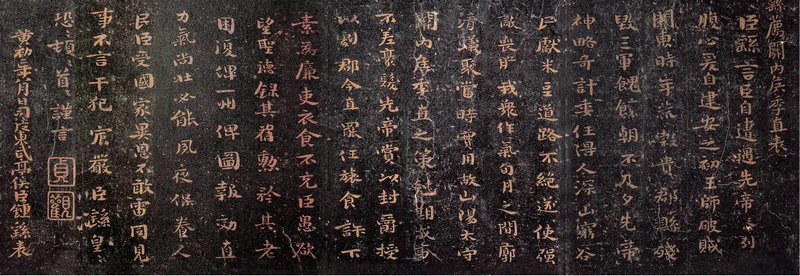 繇薦關内侯季直表
臣繇言臣自遭遇先帝忝列
腹心爰自建安之初王師破賊
關東時年荒穀貴郡縣殘
毀三軍餽饟朝不及夕先帝
神略奇計委任得人深山窮谷
民獻米豆道路不絕遂使強
敵喪膽我衆作氣旬月之間廓
清蟻聚當時實用故山陽太守
關内侯季直之策克期成事
不差豪髮先帝賞以封爵授
以劇郡今直罷任旅食許下
素為廉吏衣食不充臣愚欲
望聖德錄其舊勳矜其老
困復俾一州俾圖報効直
力氣尚壯必能夙夜保養人
民臣受國家異恩不敢雷同見
事不言干犯宸嚴臣繇皇
恐頓首謹言
貞觀
黃初二年八月日司徒東武亭侯臣鍾繇表